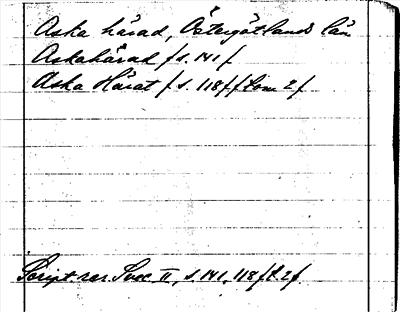 Aska härad, Östergötlands län
Askahärad /s. 141/
Aska Härat /s. 118//tom 2/
Script. rer. Svec. II, s. 141, 118/t. 2/